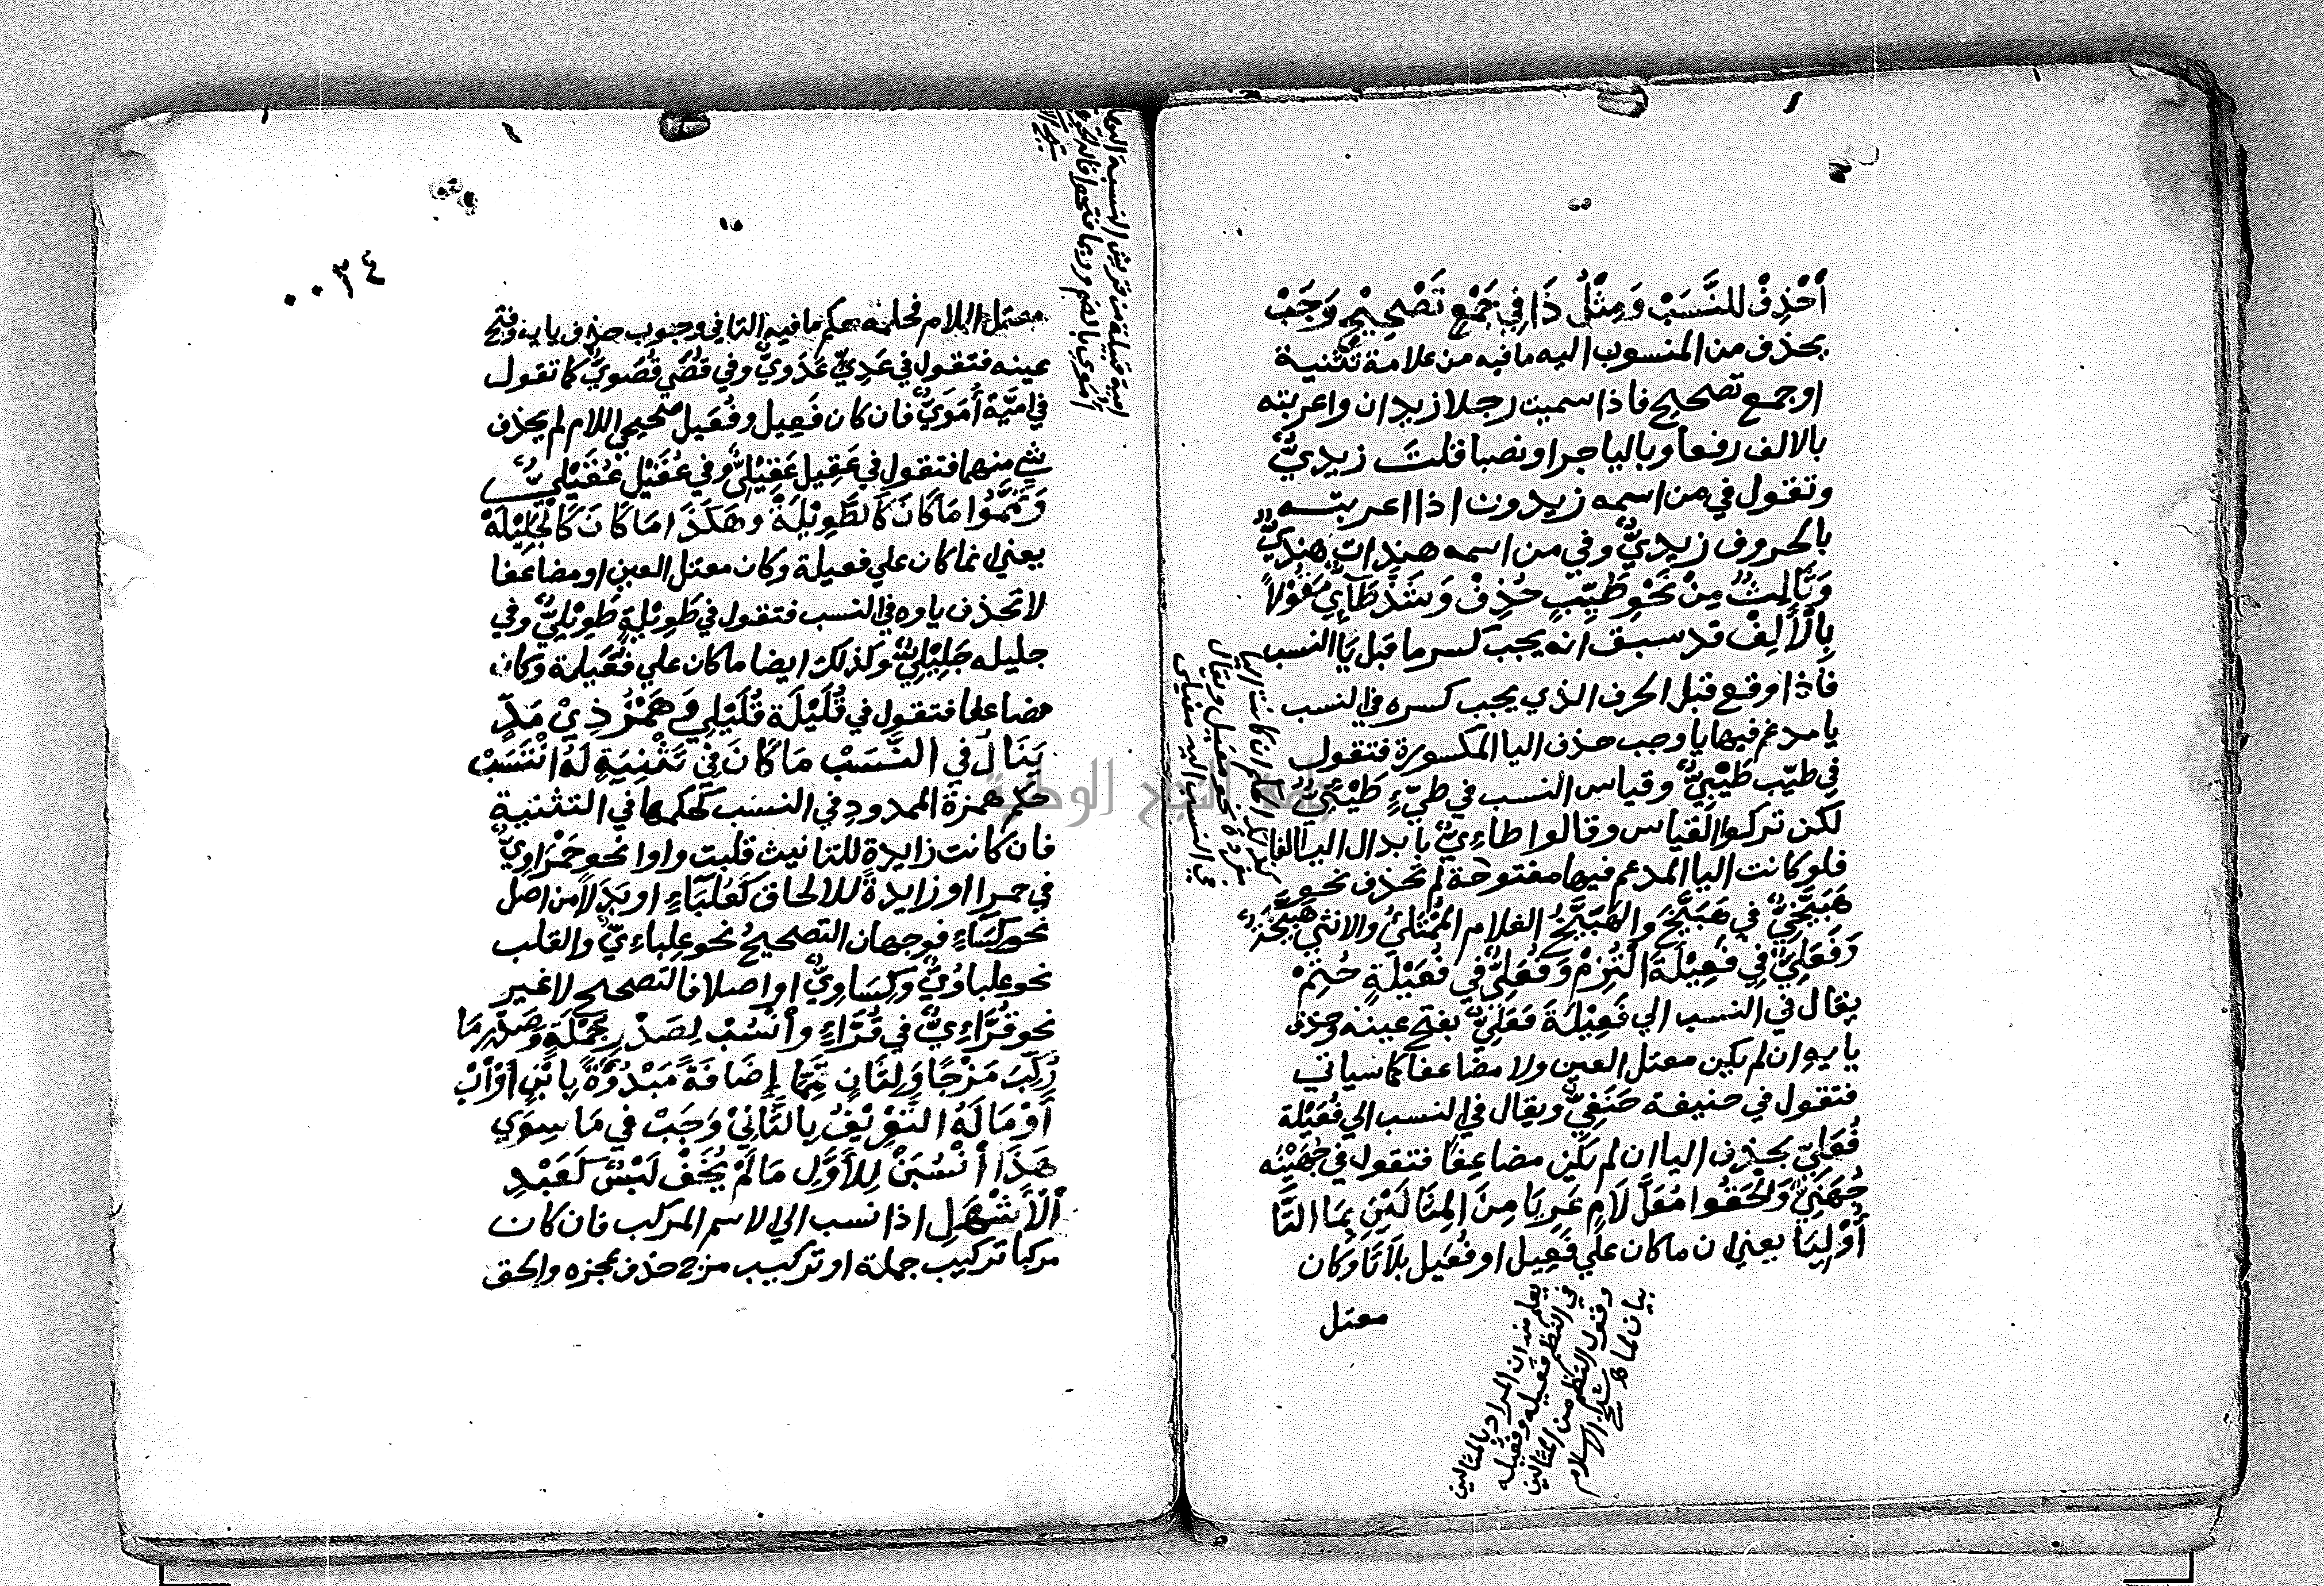 أَحْذِفْ للنَّسَبْ وَمِثْلُ ذَا فِي جَمْعِ تَصْحِيْحٍ وَجَبْ
يحذف من المنسوب اليه ما فيه من علامة تثنية
او جمع تصحيح فاذا سميت رجلا زيدان واعربته
بالالف رفعا وباليا جرا ونصبا قلت زيديٌّ
وتقول في من اسمه زيدون اذا اعربته
بالحروف زيديٌّ وفي من اسمه هندات هنديٌّ
وَثَالِثٌ مِنْ نَحْوِ طَيِّبٍ حُذِفْ وَشَذَّ طَآئِيٌّ مَقُوْلاً
بِالْأَلِفْ قد سبق انه يجب كسر ما قبل يا النسب
فاذا وقع قبل الحرف الذي يجب كسره في النسب
يا مدغم فيها يا وجب حذف اليا المكسورة فتقول
في طيّب طَيْبِيٌّ وقياس النسب في طيّءٍ طَيْئِيٌّ
لكن تركوا القياس وقالوا طاءيٌّ بابدال اليا الفا
فلو كانت اليا المدغم فيها مفتوحة لم تحذف نحو
هَبَيَّخِيٌّ في هَبَيَّخٍ والهَبَيَّخُ الغلام الممتلئ والانثي هَبَيَّخَةٌ
وَفَعَلِيٌّ فِي فَعِيْلَةَ الْتُزِمْ وَفُعَلِيٌّ فِي فُعَيْلَةٍ حُتِمْ
يقال في النسب الي فَعِيْلَةَ فَعَلِيٌّ بفتح عينه وحذف
يايه ان لم يكن معتل العين ولا مضاعفا كما سياتي
فتقول في حنيفة حَنَفِيٌّ ويقال في النسب الي فُعَيْلة
فُعَلِيّ بحذف اليا ان لم يكن مضاعفا فتقول في جُهَيْنه
جُهَنِيٌّ وَأَلْحَقُوا مُعَلَّ لَامٍ عَرِيَا مِنَ المِثَالَيْنِ بِمَا التَّا
أُوْلِيَا يعني ان ما كان علي فَعِيل او فُعَيل بلا تا وكان
معتل
يعلم منه ان المراد بالمثالين
في النظم فعيله وفعيله
وقول النظم من المثالين
بيان لما قا شيخ الاسلام
فى النسب اليه عقيلى
نحو عقيل ويقال
٠٠٣٤
امية قبيلة من قريش النسبة اليها
اموي بالضم وربما فتحوا
معتل اللام فحكمه حكم ما فيه التا في وجوب حذف يايه وفتح
عينه فتقول في عَدِيٍّ عَدَوِيٌّ وفي قُصَيٍّ قُصَوِيٌّ كما تقول
في اميَّة أُمَوِيٌّ فان كان فَعِيل وفُعَيل صحيحي اللام لم يحذف
شي منهما فتقول في عَقِيل عَقِيْلِيٌّ وفي عُقَيْل عُقَيْلِيٌّ
وَتَمَّمُوا مَا كَانَ كَالطَّوِيْلَةْ وهَكَذَا مَا كَانَ كَالْجَلِيْلَةْ
يعني ان ما كان علي فعيلة وكان معتل العين او مضاعفا
لا تحذف ياوه في النسب فتقول في طَوِيْلةٍ طَوِيْلِيٌّ وفي
جليله جَلِيْلِيٌّ وكذلك ايضا ما كان علي فُعَيلة وكان
مضاعفا فتقول في قُلَيْلَة قُلَيْلِي وَهَمْزُ ذِيْ مَدٍّ
يَنَالُ في النَّسَبْ مَا كَانَ فِيْ تَثْنِيَةٍ لَهُ انْتَسَبْ
حكم همزة الممدود في النسب كحكمها في التثنية
فان كانت زايدة للتانيث قلبت واوا نحو حَمْرَاوِيٌّ
في حمرا او زايدة للالحاق كَعِلْبَاءٍ او بَدَلاً من اصل
نحو كِسَاءٍ فوجهان التصحيحُ نحو عِلباءِيٌّ والقلب
نحو علباوِيٌّ وكِسَاوِيٌّ او اصلا فالتصحيح لا غير
نحو قُرَّاءِيٌّ في قُرَّاءٍ وأَنْسُبْ لِصَدْرِ جُمْلَةٍ وصَدْرِ مَا
رُكِّبَ مَزْجًا وَلِثَانٍ تَمَّمَا إِضَافَةً مَبْدُوَّةً بِابْنٍ أَوْ أَبْ
أَوْ مَا لَهُ التَّعْرِيْفُ بِالثَّانِيْ وَجَبْ فِي مَا سِوَي
هَذَا أَنْسُبَنْ لِلأَوَّلِ مَا لَمْ يُخَفْ لَبْسٌ كَعَبْدِ
الْأَشْهَلِ اذا نسب الي الاسم المركب فان كان
مركبا تركيب جملة او تركيب مزج حذف عجزه والحق